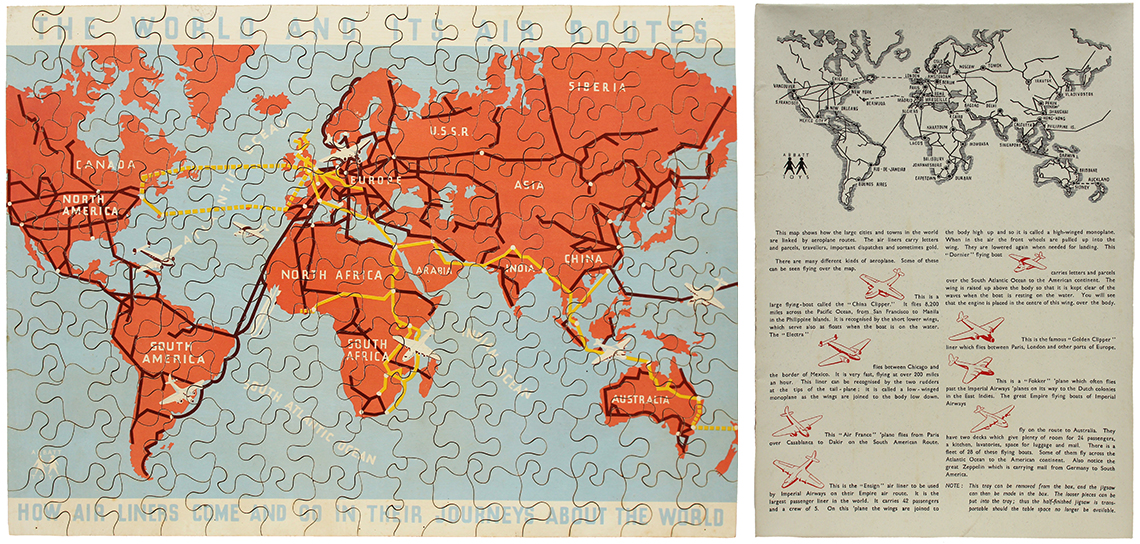 THE WORLD AND ITS AIR ROUTES
SIBERIA
U.S.S.R.
CANADA
EUROPE
ASIA
NORTH
AMERICA
CHINA
NORTH AFRICA
ARABIA
INDIA
SOUTH
AMERICA
SOUTH
AFRICA
AUSTRALIA
SOUTH ATLANTIC OCEAN
HOW AIR LINERS COME AND GO IN THEIR JOURNEYS ABOUT THE WORLD
OSLO
MOSCOW
TOMSK
CHICAGO
LONDON
AMSTERDAM
BERLIN
IRKUTSK
VANCOUVER
NEW YORK
PARIS
ROME
VLADIVOSTOK
S. FRANCISCO
BERMUDA
MADRID
MARSEILLE
PEKIN
NEW ORLEANS
ALGIERS
BAGDAD
DELHI
SHANGHAI
HONG-KONG
MEXICO CITY
CAIRO
CALCUTTA
PHILIPPINE IS.
KHARTOUM
LAGOS
MOMBASA
SINGAPORE
ABBATT
TOYS
SALISBURY
DARWIN
RIO-DE-JANEIRO
JOHANNESBURG
BRISBANE
BUENOS AIRES
CAPETOWN
DURBAN
AUCKLAND
SIDNEY
This map shows how the large cities and towns in the world
are linked by aeroplane routes. The air liners carry letters
and parcels, travellers, important dispatches and sometimes gold.
There are many different kinds of aeroplane. Some of these
can be seen flying over the map.
This is a
large flying-boat called the "China Clipper." It flies 8,200
miles across the Pacific Ocean, from San Francisco to Manila
in the Philippine Islands. It is recognised by the short lower wings,
which serve also as floats when the boat is on the water.
The "Electra"
flies between Chicago and
the border of Mexico. It is very fast, flying at over 200 miles
an hour. This liner can be recognised by the two rudders
at the tips of the tail-plane; It is called a low-winged
monoplane as the wings are joined to the body low down.
This "Air France" 'plane flies from Paris
over Casablanca to Dakir on the South American Route.
This is the "Ensign" air liner to be used
by Imperial Airways on their Empire air route. It is the
largest passenger liner in the world. It carries 42 passengers
and a crew of 5. On this 'plane the wings are joined to
the body high up and so it is called a high-winged monoplane.
When in the air the front wheels are pulled up into the
wing. They are lowered again when needed for landing. This
"Dornier" flying boat
carries letters and parcels
over the South Atlantic Ocean to the American continent. The
wing is raised up above the body so that it is kept clear of the
waves when the boat is resting on the water. You will see
that the engine is placed in the centre of this wing, over the body.
This is the famous "Golden Clipper"
liner which flies between Paris, London and other parts of Europe,
This is a "Fokker" 'plane which often flies
past the Imperial Airways 'planes on its way to the Dutch colonies
in the East Indies. The great Empire flying boats of Imperial
Airways
fly on the route to Australia. They
have two decks which give plenty of room for 24 passengers,
a kitchen, lavatories, space for luggage and mail. There is a
fleet of 28 of these flying boats. Some of them fly across the
Atlantic Ocean to the American continent. Also notice the
great Zeppelin which is carrying mail from Germany to South
America.
NOTE: This tray can be removed from the box, and the jigsaw
can then be made in the box. The looser pieces can be
put into the tray; thus the half-finished jigsaw is trans-
portable should the table space no longer be available.